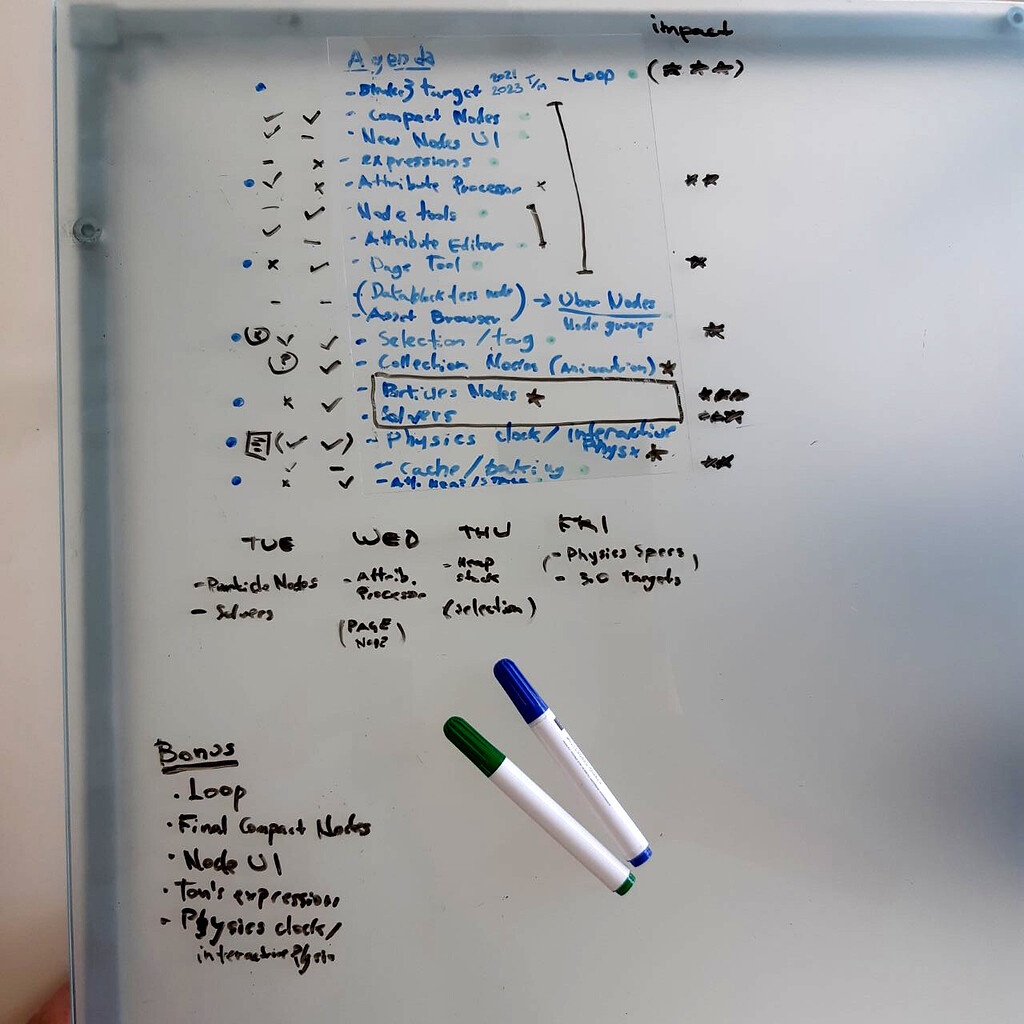 impact
Agenda
- target 2021 2023 - Loop (★ ★ ★)
- Compact Nodes
- New Nodes UI
- expressions
- Attribute Processor x ★★
- Node tools
- Attribute Editor
- Page Tool ★
(Datablock less node) → Uber Nodes
- Asset Browser Node groups
- Selection / tag ★
- Collection Nodes (Animation) ★
- Particles Nodes ★ ★★★
- Solvers ★★★
- Physics clock / interactive
Physx ★
- Cache / baking ★★
- Att. Heap / Stack
TUE WED THU FRI
- Particle Nodes
- Solvers
- Attrib.
Processor
(PAGE
- Heap
stack
(selection)
(- Physics Specs)
- 3.0 targets
Bonus
· Loop
· Final Compact Nodes
· Node UI
· Tom's expression
· Physics clock /
interactive